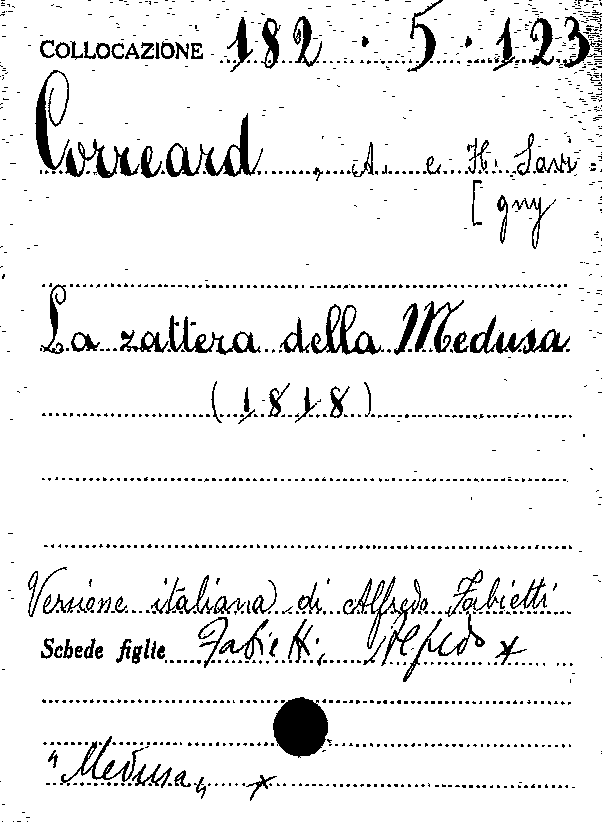 COLLOCAZIONE 182 . 5 . 123
Correard, A. e H. Savi=
[gny
La zattera della Medusa
(1818)
Versione italiana di Alfredo Fabietti
Schede figlie Fabietti, Alfredo x
"Medusa" x